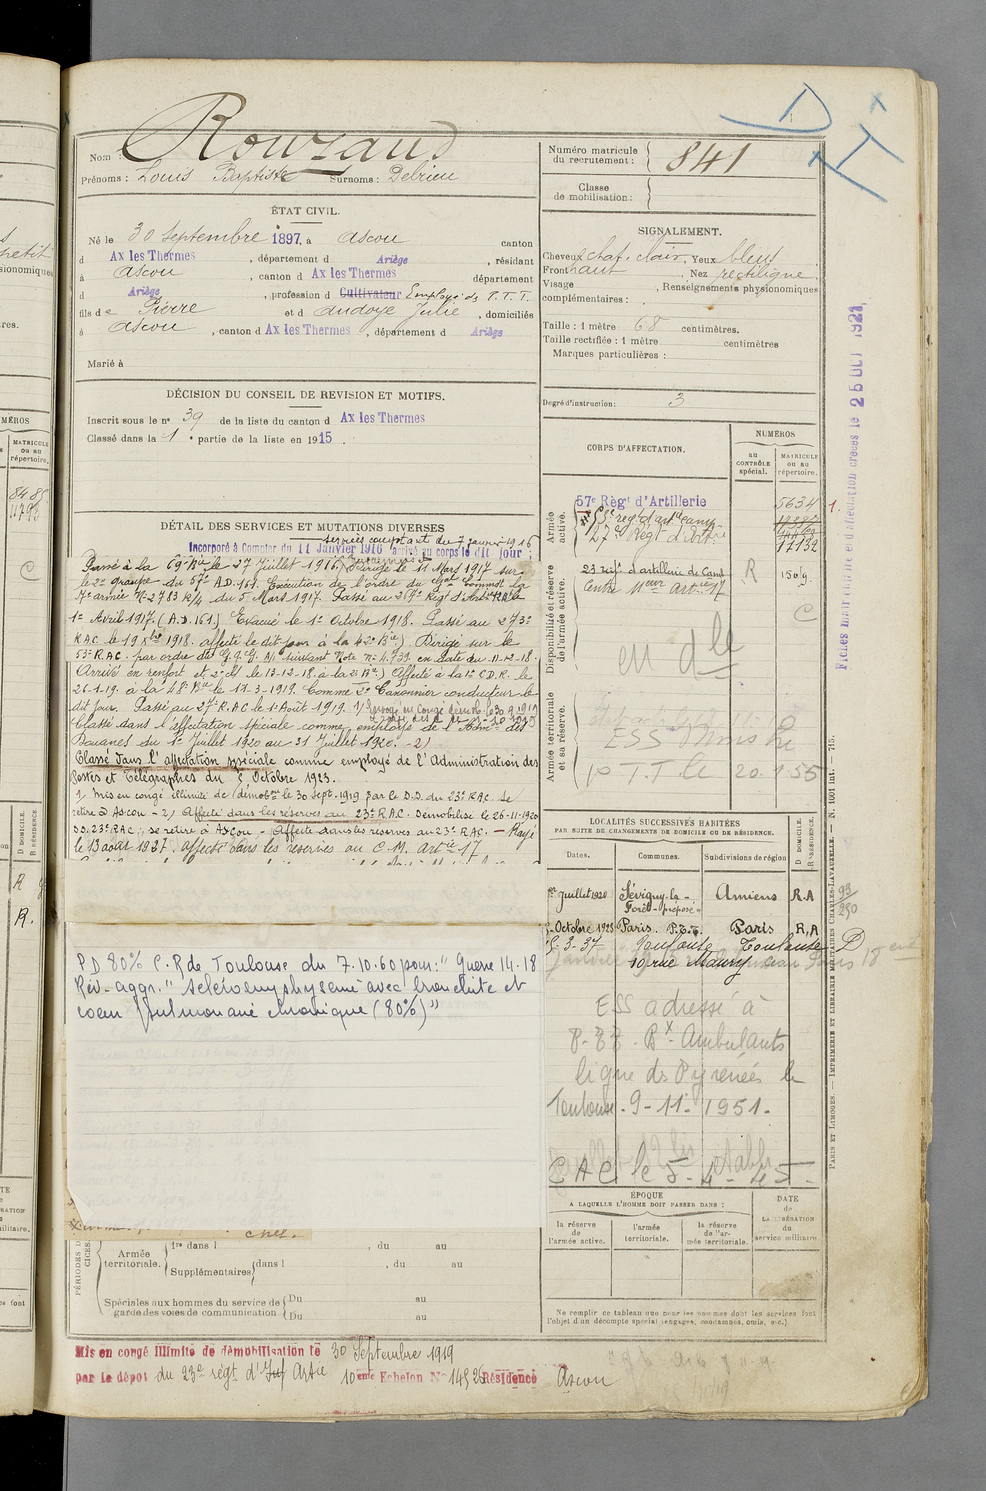 Nom : Rouzaud
Prénoms : Louis Baptiste Surnoms : Delrieu
ÉTAT CIVIL.
Né le 30 Septembre 1897, à Ascou canton
d Ax les Thermes, département d Ariège, résidant
à Ascou, canton d Ax les Thermes département
d Ariège, profession d Cultivateur Employé de P.T.T.
fils de Pierre et d Audoye Julie, domiciliés
à Ascou, canton d Ax les Thermes, département d Ariège
Marié à
DÉCISION DU CONSEIL DE REVISION ET MOTIFS.
Inscrit sous le n° 39 de la liste du canton d Ax les Thermes
Classé dans la 1 e partie de la liste en 1915.
DÉTAIL DES SERVICES ET MUTATIONS DIVERSES
services comptant du 7 janvier 1916
Incorporé à Compter du 11 Janvier 1916 arrivé au corps le dit jour;
Passé à la 69e Bie le 27 Juillet 1916. Dirigé le 11 Mars 1917 sur
le 2e groupe du 57e A.D. 161. Exécution de l'ordre du Gal Commdt la
7e armée N° 2783 R/4 du 5 Mars 1917. Passé au 267e Régt d'Artie R.A.C le
1er Avril 1917. (A.D. 161) Evacué le 1er Octobre 1918. Passé au 273e
RAC le 19 8bre 1918. affecté le dit jour à la 42e Bie) Dirigé sur le
53e R.A.C. par ordre du G.Q.G. A1 suivant Note N° 4.739 en date du 11-12-18.
Arrivé en renfort et dt le 13-12-18 à la 21 Bie) Affecté à la 1re C.D.R. le
26-1-19. à la 48e Bie le 11-3-1919. Comme 2e Canonnier conducteur le
dit jour. Passé au 27e R.A.C le 1er Août 1919. 1) Envoyé en Congé démob. le 30 9 1919
Classé dans l'affectation spéciale comme employé de l'Admon des
Douanes du 1er Juillet 1920 au 31 Juillet 1920. -2)
Classé dans l'affectation spéciale comme employé de l'Administration des
Postes et Télégraphes du 5 Octobre 1923.
1) Mis en congé illimité de démobon le 30 Sept. 1919 par le D.D. du 23e RAC. Se
retire à Ascou - 2) Affecté dans les réserves au 23e R.A.C. Démobilisé le 26-11-1920
D.D. 23e RAC, se retire à Ascou - Affecté dans les reserves au 23e RAC. - Rayé
le 13 août 1927. affecté dans les réserves au C.M. Artie 17
P D 80% C.R de Toulouse du 7.10.60 pour: " Guerre 14.18
Rév. aggr. " scléroemphyseme avec bronchite et
coeur pulmonaire chronique (80%)"
chef.
PÉRIODES D
Armée territoriale.
1re dans l , du au
Supplémentaires dans l , du au
Spéciales aux hommes du service de garde des voies de communication.
Du au
Du au
Mis en congé illimité de démobilisation le 30 Septembre 1919
par le dépôt du 23e régt d'Inf Artie 10eme Echelon N° 14526 Résidence Ascou
Numéro matricule du recrutement : 841
Classe de mobilisation :
SIGNALEMENT.
Cheveux chat. clair, Yeux bleus
Front haut, Nez rectiligne
Visage , Renseignements physionomiques
complémentaires :
Taille : 1 mètre 68 centimètres.
Taille rectifiée : 1 mètre centimètres
Marques particulières :
Degré d'instruction : 3
CORPS D'AFFECTATION.
NUMÉROS
AU CONTRÔLE spécial.
MATRICULE ou au répertoire.
Armée active.
57e Régt d'Artillerie 5634
27e Régt d'Artie 17132
Disponibilité et réserve de l'armée active.
23 régt d'artillerie de Camp R 1509
Centre Meur Artie 17 C
en dle
Armée territoriale et sa réserve.
ESS
P.T.T le 20.1.55
LOCALITÉS SUCCESSIVES HABITÉES
PAR SUITE DE CHANGEMENTS DE DOMICILE OU DE RÉSIDENCE.
Dates. Communes. Subdivisions de région D DOMICILE. R RÉSIDENCE.
1er Juillet 1920 Sévigny-la-Forêt préposé Amiens R.A
5 Octobre 1923 Paris. P.T.T. Paris R,A
3.37 Toulouse Toulouse D
10 rue Maury
ESS adressé à
P.T.T. Bx Ambulants
ligne des Pyrénées le
Toulouse. 9-11-1951.
CAC le 5-4-45-
ÉPOQUE
A LAQUELLE L'HOMME DOIT PASSER DANS :
DATE de LA LIBÉRATION du service militaire
la réserve de l'armée active.
l'armée territoriale.
la réserve de l'armée territoriale.
Ne remplir ce tableau que pour les hommes dont les services font
l'objet d'un décompte spécial (engagés, condamnés, omis, etc.).
Fiches matricule et d'affectation créées le 25 OCT 1921.
PARIS ET LIMOGES. — IMPRIMERIE ET LIBRAIRIE MILITAIRES CHARLES-LAVAUZELLE. — N. 1001 int. — 715.
93
250